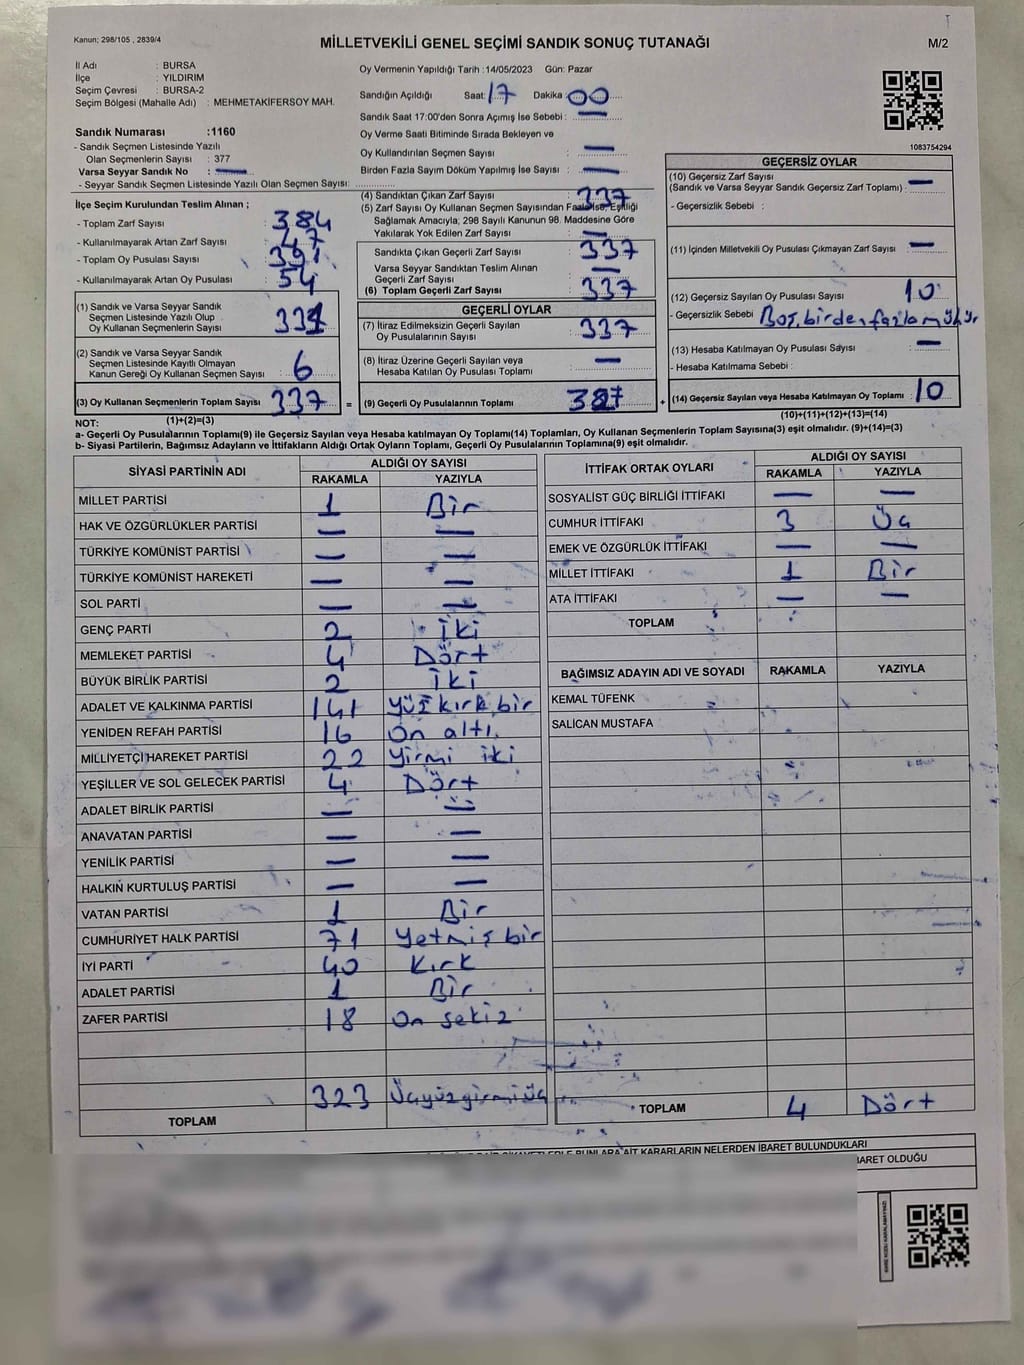 Kanun; 298/105 , 2839/4
MİLLETVEKİLİ GENEL SEÇİMİ SANDIK SONUÇ TUTANAĞI
M/2
İl Adı : BURSA
İlçe : YILDIRIM
Seçim Çevresi : BURSA-2
Seçim Bölgesi (Mahalle Adı) : MEHMETAKİFERSOY MAH.
Sandık Numarası :1160
- Sandık Seçmen Listesinde Yazılı
Olan Seçmenlerin Sayısı : 377
Varsa Seyyar Sandık No : —
- Seyyar Sandık Seçmen Listesinde Yazılı Olan Seçmen Sayısı:
Oy Vermenin Yapıldığı Tarih :14/05/2023 Gün: Pazar
Sandığın Açıldığı Saat: 17 Dakika: 00
Sandık Saat 17:00'den Sonra Açımış İse Sebebi : —
Oy Verme Saati Bitiminde Sırada Bekleyen ve
Oy Kullandırılan Seçmen Sayısı : —
Birden Fazla Sayım Döküm Yapılmış İse Sayısı : —
1083754294
İlçe Seçim Kurulundan Teslim Alınan ;
- Toplam Zarf Sayısı : 384
- Kullanılmayarak Artan Zarf Sayısı : 47
- Toplam Oy Pusulası Sayısı : 391
- Kullanılmayarak Artan Oy Pusulası : 54
(1) Sandık ve Varsa Seyyar Sandık
Seçmen Listesinde Yazılı Olup
Oy Kullanan Seçmenlerin Sayısı : 331
(2) Sandık ve Varsa Seyyar Sandık
Seçmen Listesinde Kayıtlı Olmayan
Kanun Gereği Oy Kullanan Seçmen Sayısı : 6
(3) Oy Kullanan Seçmenlerin Toplam Sayısı : 337 =
(1)+(2)=(3)
(4) Sandıktan Çıkan Zarf Sayısı : 337
(5) Zarf Sayısı Oy Kullanan Seçmen Sayısından Fazla İse, Eşitliği
Sağlamak Amacıyla; 298 Sayılı Kanunun 98. Maddesine Göre
Yakılarak Yok Edilen Zarf Sayısı : —
Sandıkta Çıkan Geçerli Zarf Sayısı : 337
Varsa Seyyar Sandıktan Teslim Alınan
Geçerli Zarf Sayısı : —
(6) Toplam Geçerli Zarf Sayısı : 337
GEÇERLİ OYLAR
(7) İtiraz Edilmeksizin Geçerli Sayılan
Oy Pusulalarının Sayısı : 337
(8) İtiraz Üzerine Geçerli Sayılan veya
Hesaba Katılan Oy Pusulası Toplamı : —
(9) Geçerli Oy Pusulalarının Toplamı : +
GEÇERSİZ OYLAR
(10) Geçersiz Zarf Sayısı
(Sandık ve Varsa Seyyar Sandık Geçersiz Zarf Toplamı) : —
- Geçersizlik Sebebi :
(11) İçinden Milletvekili Oy Pusulası Çıkmayan Zarf Sayısı : —
(12) Geçersiz Sayılan Oy Pusulası Sayısı : 10
- Geçersizlik Sebebi : Boş, birden fazla mühür
(13) Hesaba Katılmayan Oy Pusulası Sayısı : —
- Hesaba Katılmama Sebebi :
(14) Geçersiz Sayılan veya Hesaba Katılmayan Oy Toplamı : 10
(10)+(11)+(12)+(13)=(14)
NOT:
a- Geçerli Oy Pusulalarının Toplamı(9) ile Geçersiz Sayılan veya Hesaba katılmayan Oy Toplamı(14) Toplamları, Oy Kullanan Seçmenlerin Toplam Sayısına(3) eşit olmalıdır. (9)+(14)=(3)
b- Siyasi Partilerin, Bağımsız Adayların ve İttifakların Aldığı Ortak Oyların Toplamı, Geçerli Oy Pusulalarının Toplamına(9) eşit olmalıdır.
SİYASİ PARTİNİN ADI ALDIĞI OY SAYISI
RAKAMLA YAZIYLA
MİLLET PARTİSİ 1 Bir
HAK VE ÖZGÜRLÜKLER PARTİSİ — —
TÜRKİYE KOMÜNİST PARTİSİ — —
TÜRKİYE KOMÜNİST HAREKETİ — —
SOL PARTİ — —
GENÇ PARTİ 2 İki
MEMLEKET PARTİSİ 4 Dört
BÜYÜK BİRLİK PARTİSİ 2 İki
ADALET VE KALKINMA PARTİSİ 141 Yüz kırk bir
YENİDEN REFAH PARTİSİ 16 On altı
MİLLİYETÇİ HAREKET PARTİSİ 22 Yirmi iki
YEŞİLLER VE SOL GELECEK PARTİSİ 4 Dört
ADALET BİRLİK PARTİSİ — —
ANAVATAN PARTİSİ — —
YENİLİK PARTİSİ — —
HALKIN KURTULUŞ PARTİSİ — —
VATAN PARTİSİ 1 Bir
CUMHURİYET HALK PARTİSİ 71 Yetmiş bir
İYİ PARTİ 40 Kırk
ADALET PARTİSİ 1 Bir
ZAFER PARTİSİ 18 On sekiz
TOPLAM 323 Üçyüzyirmiüç
İTTİFAK ORTAK OYLARI ALDIĞI OY SAYISI
RAKAMLA YAZIYLA
SOSYALİST GÜÇ BİRLİĞİ İTTİFAKI — —
CUMHUR İTTİFAKI 3 Üç
EMEK VE ÖZGÜRLÜK İTTİFAKI — —
MİLLET İTTİFAKI 1 Bir
ATA İTTİFAKI — —
TOPLAM
BAĞIMSIZ ADAYIN ADI VE SOYADI RAKAMLA YAZIYLA
KEMAL TÜFENK
SALİCAN MUSTAFA
TOPLAM 4 Dört
AİT KARARLARIN NELERDEN İBARET BULUNDUKLARI
BARET OLDUĞU